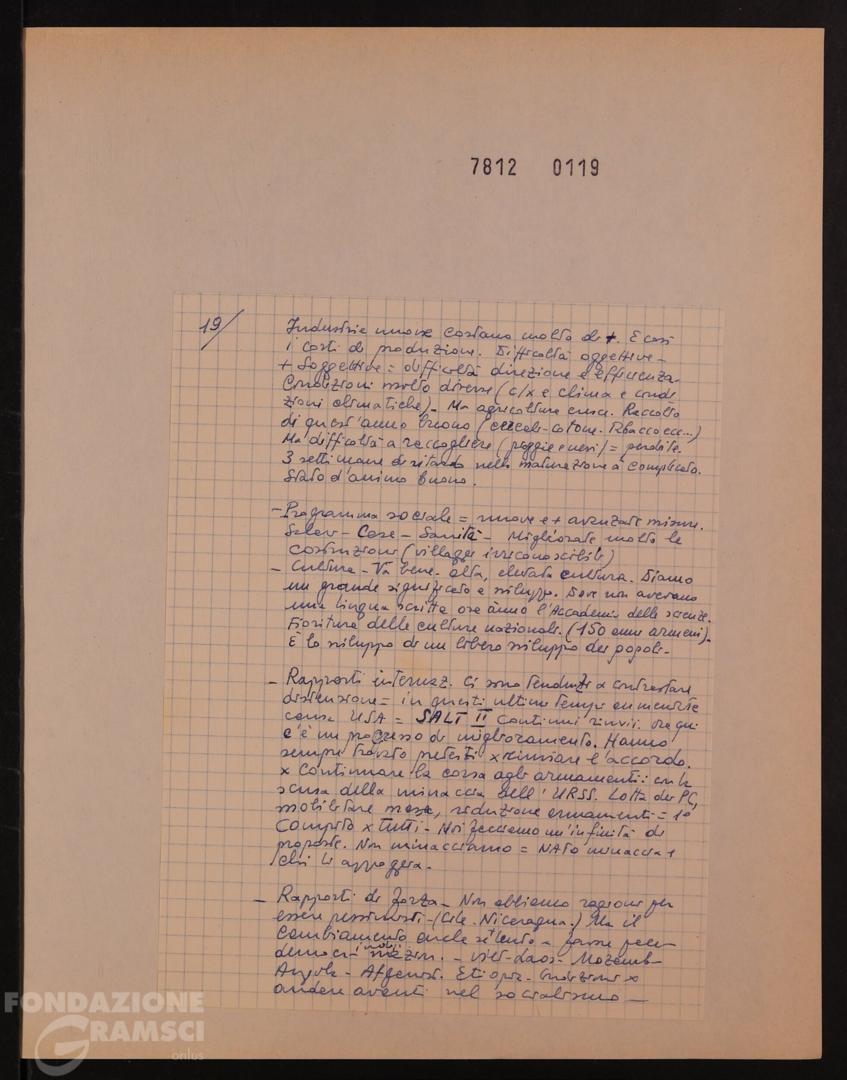 7812 0119
19/
Industrie nuove costano molto di +. E così
i costi di produzione. Difficoltà oggettive -
+ Soggettive = difficoltà direzione e efficienza.
Condizioni molto diverse (c/x e clima e condi
zioni climatiche) - Ma agricoltura cresce. Raccolto
di quest'anno buono (cereali - cotone. Tabacco ecc...)
Ma difficoltà a raccogliere (piogge e nevi) = perdite.
3 settimane di ritardo nella maturazione à complicato.
Stato d'animo buono.
- Programma sociale = nuove e + avanzate misure.
Salari - Case - Sanità - Migliorate molto le
costruzioni (villaggi irriconoscibili)
- Cultura - Va bene. alta, elevata cultura. Diamo
un grande significato e sviluppo. Dove non avevano
una lingua scritta ora ànno l'Accademia delle scienze.
Fioritura delle culture nazionali. (150 anni armeni) -
È lo sviluppo di un libero sviluppo dei popoli -
- Rapporti internaz. Ci sono tendenze x contrastare
distensione = in questi ultimi tempi aumentate
causa USA = SALT II continui rinvii. ora qui
c'è un processo di miglioramento. Hanno
sempre trovato pretesti x rinviare l'accordo.
x continuare la corsa agli armamenti: con la
scusa della minaccia dell'URSS. Lotta dei PC,
mobilitare masse, riduzione armamenti = 1°
compito x tutti - Noi facciamo un'infinità di
proposte. Non minacciamo = NATO minaccia e
chi li appoggia -
- Rapporti di forza - Non abbiamo ragioni per
essere pessimisti - (Cile. Nicaragua.) Ma il
cambiamento anche se lento - forse
democr.
- Viet - Laos - Mozamb -
Angola - Afganist. Etiopia. Condizioni x
andare avanti nel socialismo -
FONDAZIONE
GRAMSCI
onlus